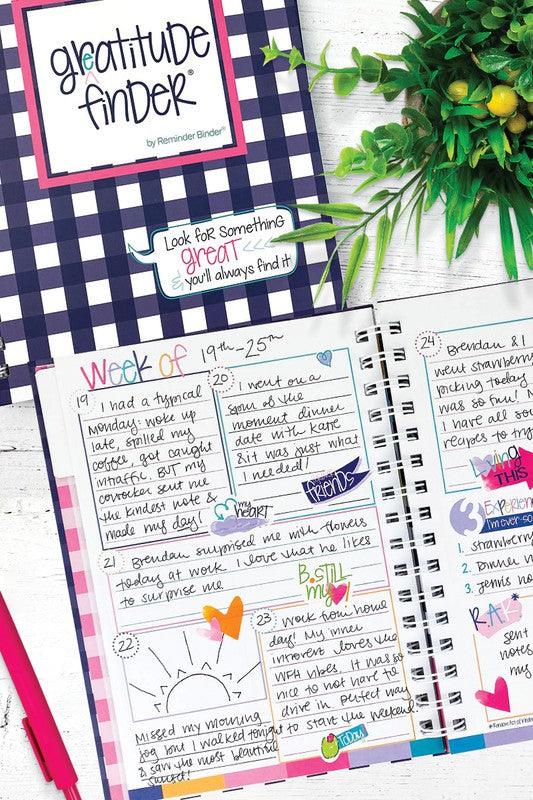 greatitude
finder®
by Reminder Binder®
Look for Something
great
& you'll always find it
Week of 19th-25th
19
I had a typical
Monday: woke up
late, spilled my
coffee, got caught
in traffic. BUT my
coworker sent me
the kindest note &
made my day!
20
I went on a
spur of the
moment dinner
date with Katie
& it was just what
I needed!
friends
my
heart
21
Brendan surprised me with flowers
today at work. I love that he likes
to surprise me
B.Still
my
22
Missed my morning
jog, but I walked tonight
& saw the most beautiful
sunset!
23
Work from home
day! My inner
introvert loves the
WFH vibes. It was so
nice to not have to
drive in. Perfect way
to start the weekend!
Today
24
Brendan & I
went strawberry
picking today
was so fun!
I have all so
recipes to try
THIS
3 Experien
I'm ever-so
1. Strawberry
2. Dinner w
3. Jenni's no
R.A.K*
sent
notes
my